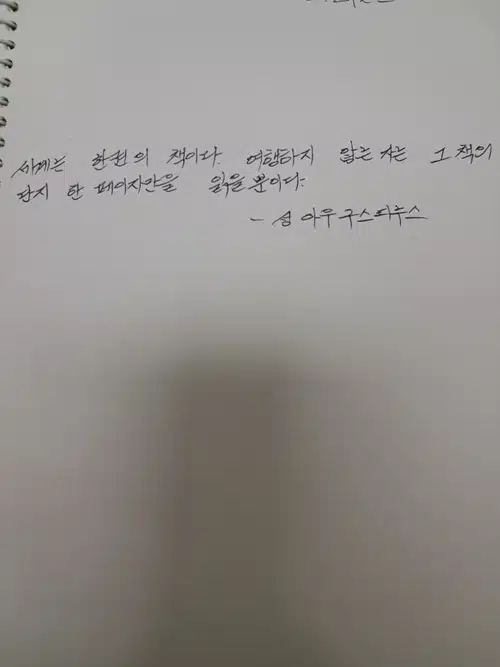 세계는 한권의 책이다. 여행하지 않는 자는 그 책의
단지 한 페이지만을 읽을 뿐이다.
- 성 아우구스티누스